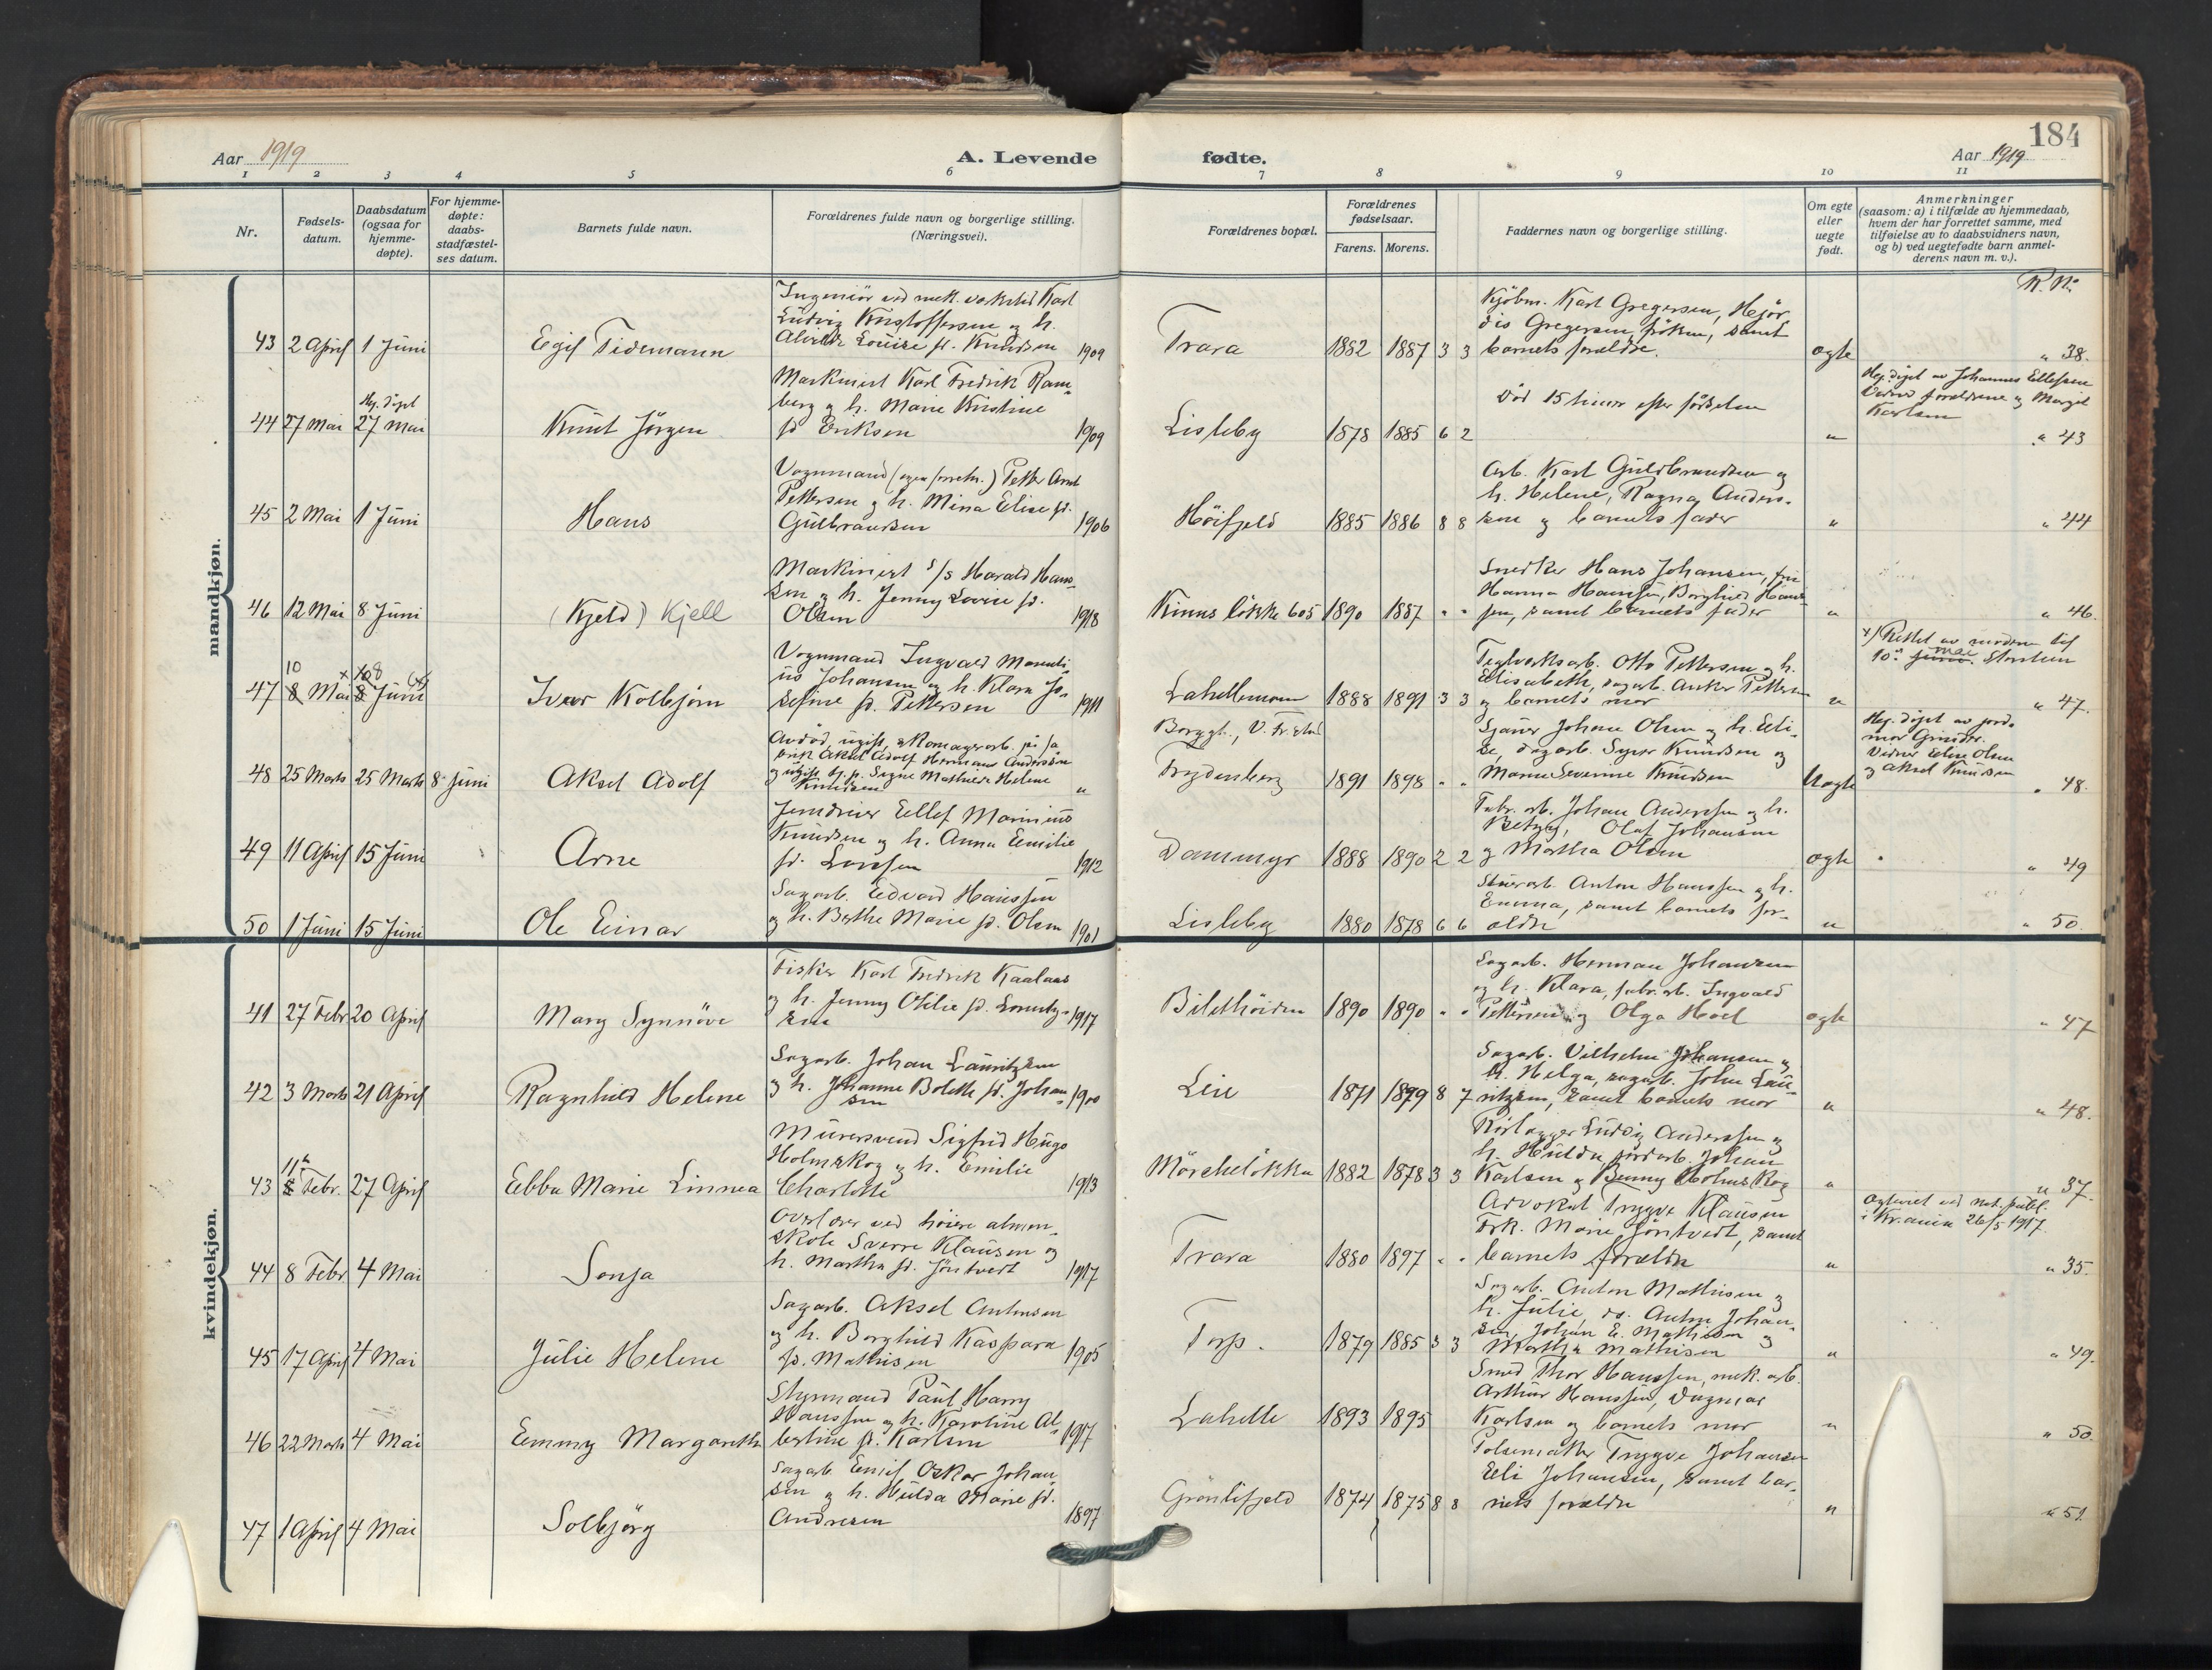 184
Aar 1919
A. Levende
fødte.
Aar 1919
1 2 3 4 5 6 7 8 9 10 11
Nr.
Fødsels-
datum.
Daabsdatum
(ogsaa for
hjemme-
døpte).
For hjemme-
døpte:
daabs-
stadfæstel-
ses datum.
Barnets fulde navn.
Forældrenes fulde navn og borgerlige stilling.
(Næringsvei).
Forældrenes bopæl.
Forældrenes
fødselsaar.
Farens. Morens.
Faddernes navn og borgerlige stilling.
Om egte
eller
uegte
født.
Anmerkninger
(saasom: a) i tilfælde av hjemmedaab,
hvem der har forrettet samme, med
tilføielse av to daabsvidners navn,
og b) ved uegtefødte barn anmel-
derens navn m. v.).
R. N:
mandkjøn.
43 2 April 1 Juni
Egil Tidemann
Ingeniør ved mek. verksted Karl
Ludvig Kristoffersen og h.
Louise fd. Knudsen 1909
Trara
1882 1887 3 3
Kjøbm. Karl Gregersen, Hjør
dis Gregersen, frøken, samt
barnets forældre.
egte
" 38.
44 27 Mai Hj. døpt 27 Mai
Knut Jørgen
Maskinist Karl Fredrik Ram-
berg og h. Marie Kristine
fd Eriksen 1909
Lisleby
1878 1885 6 2
Død 15 timer efter fødselen
"
Hj. døpt av Johannes Ellefsen
Vidner forældrene og Margit
Karlsen
" 43
45 2 Mai 1 Juni
Hans
Vognmand (egen forretn.) Petter Arnt
Pettersen og h. Mina Elise fd.
Gulbrandsen 1906
Høifjeld
1885 1886 8 8
Arb. Karl Guldbrandsen og
h. Helene, Ragna Anders-
sen og barnets fader
"
" 44
46 12 Mai 8 Juni
(Kjeld) Kjell
Maskinist s/s Harald Hans-
sen og h. Jenny Lovise fd.
Olsen 1918
Kinus løkke 605
1890 1887 " "
Snedker Hans Johansen, fru
Hanna Hansen, Borghild Hans-
sen, samt barnets fader
"
" 46.
47 10 8 Mai 8 Juni
Ivar Kolbjørn
Vognmand Ingvald
Johansen og h. Klara Jo-
sefine fd. Pettersen 1911
1888 1891 3 3
Teglverksarb. Otto Pettersen og h.
Elisabeth, sagarb. Anker Pettersen
og barnets mor
"
x) Rettet av moderen til
10. mai
" 47.
48 25 Marts 25 Marts 8 Juni
Aksel Adolf
Avdød, ugift,
Aksel Adolf Hermann Anderssen
og ugift Signe Mathilde Helene
Knudsen "
Frydenberg
1891 1898 " "
Johan Olsen og h. Eli-
se, dagarb. Syver Knudsen og
Marie Severine Knudsen
Uegte
Hj. døpt av jord-
mor Grinder.
Vidner Elise Olsen
og Aksel Knudsen
" 48.
49 11 April 15 Juni
Arne
Ellef Marinius
Knudsen og h. Anna Emilie
fd. Larssen 1912
Dammyr
1888 1890 2 2
Fabr. arb. Johan Anderssen og h.
Betzy, Olaf Johansen
og Martha Olsen
egte
" 49
50 1 Juni 15 Juni
Ole Einar
Sagarb. Edvard Hanssen
og h. Berthe Marie fd. Olsen 1901
Lisleby
1880 1878 6 6
Anton Hanssen og h.
Emma, samt barnets for-
ældre
"
" 50.
kvindekjøn.
41 27 Febr 20 April
Mary Synnøve
Fisker Karl Fredrik Kaalaas
og h. Jenny Otilie fd. Lorentz-
sen 1917
1890 1890 " "
Sagarb. Herman Johansen
og h. Klara, fabr. arb. Ingvald
Pettersen og Olga Hoel
egte
" 47
42 3 Marts 21 April
Ragnhild Helene
Sagarb. Johan Lauritzsen
og h. Johanne Bolette fd. Johan-
sen 1900
Leie
1871 1879 8 7
Sagarb. Vilhelm Johansen og
h. Helga, sagarb. John Lau-
ritzsen, samt barnets mor
"
" 48.
43 11 Febr. 27 April
Ebba Marie Linnea
Murersvend Sigfrid Hugo
Holmskog og h. Emilie
Charlotte 1913
Mørcheløkka
1882 1878 3 3
Rørlægger Ludvig Anderssen og
h. Hulda, jordarb. Johan
Karlsen og Benny Holmskog
"
" 37.
44 8 Febr 4 Mai
Sonja
Overlærer ved høiere almen-
skole Sverre Klausen og
h. Martha fd. Jøntvedt 1917
Trara
1880 1897 " "
Advokat Trygve Klausen
Frk. Marie Jøntvedt, samt
barnets forældre
"
Egteviet ved not. publ.
i Kr.ania 26/5 1917.
" 35.
45 17 April 4 Mai
Julie Helene
Sagarb. Aksel Antonsen
og h. Borghild Kaspara
fd. Mathisen 1905
Torp.
1879 1885 3 3
Sagarb. Anton Mathisen og
h. Julie, do. Anton Johan-
sen, Johan E. Mathisen og
Martha Mathisen
"
" 49.
46 22 Marts 4 Mai
Emmy Margareth
Styrmand Paul Harry
Hanssen og h. Karoline Al-
bertine fd. Karlsen 1917
Lahelle
1893 1895
Smed Thor Hanssen, mek. arb.
Arthur Hanssen, Dagmar
Karlsen og barnets mor
"
" 50.
47 1 April 4 Mai
Solbjørg
Sagarb. Emil Oskar Johan-
sen og h. Hulda Marie fd.
Andresen 1897
Grønlifjeld
1874 1875 8 8
Pølsemaker Trygve Johansen
Elli Johansen, samt bar-
nets forældre
"
" 51.